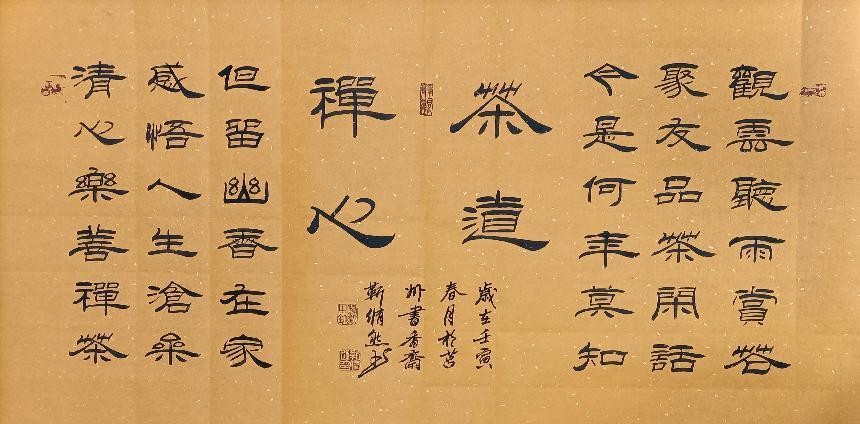 觀雲聽雨賞茗
聚友品茶閑話
今是何年莫知
茶道
禪心
歲在壬寅
春月於莒
州書香齋
靳
但留幽香在家
感悟人生滄桑
清心樂善禪茶